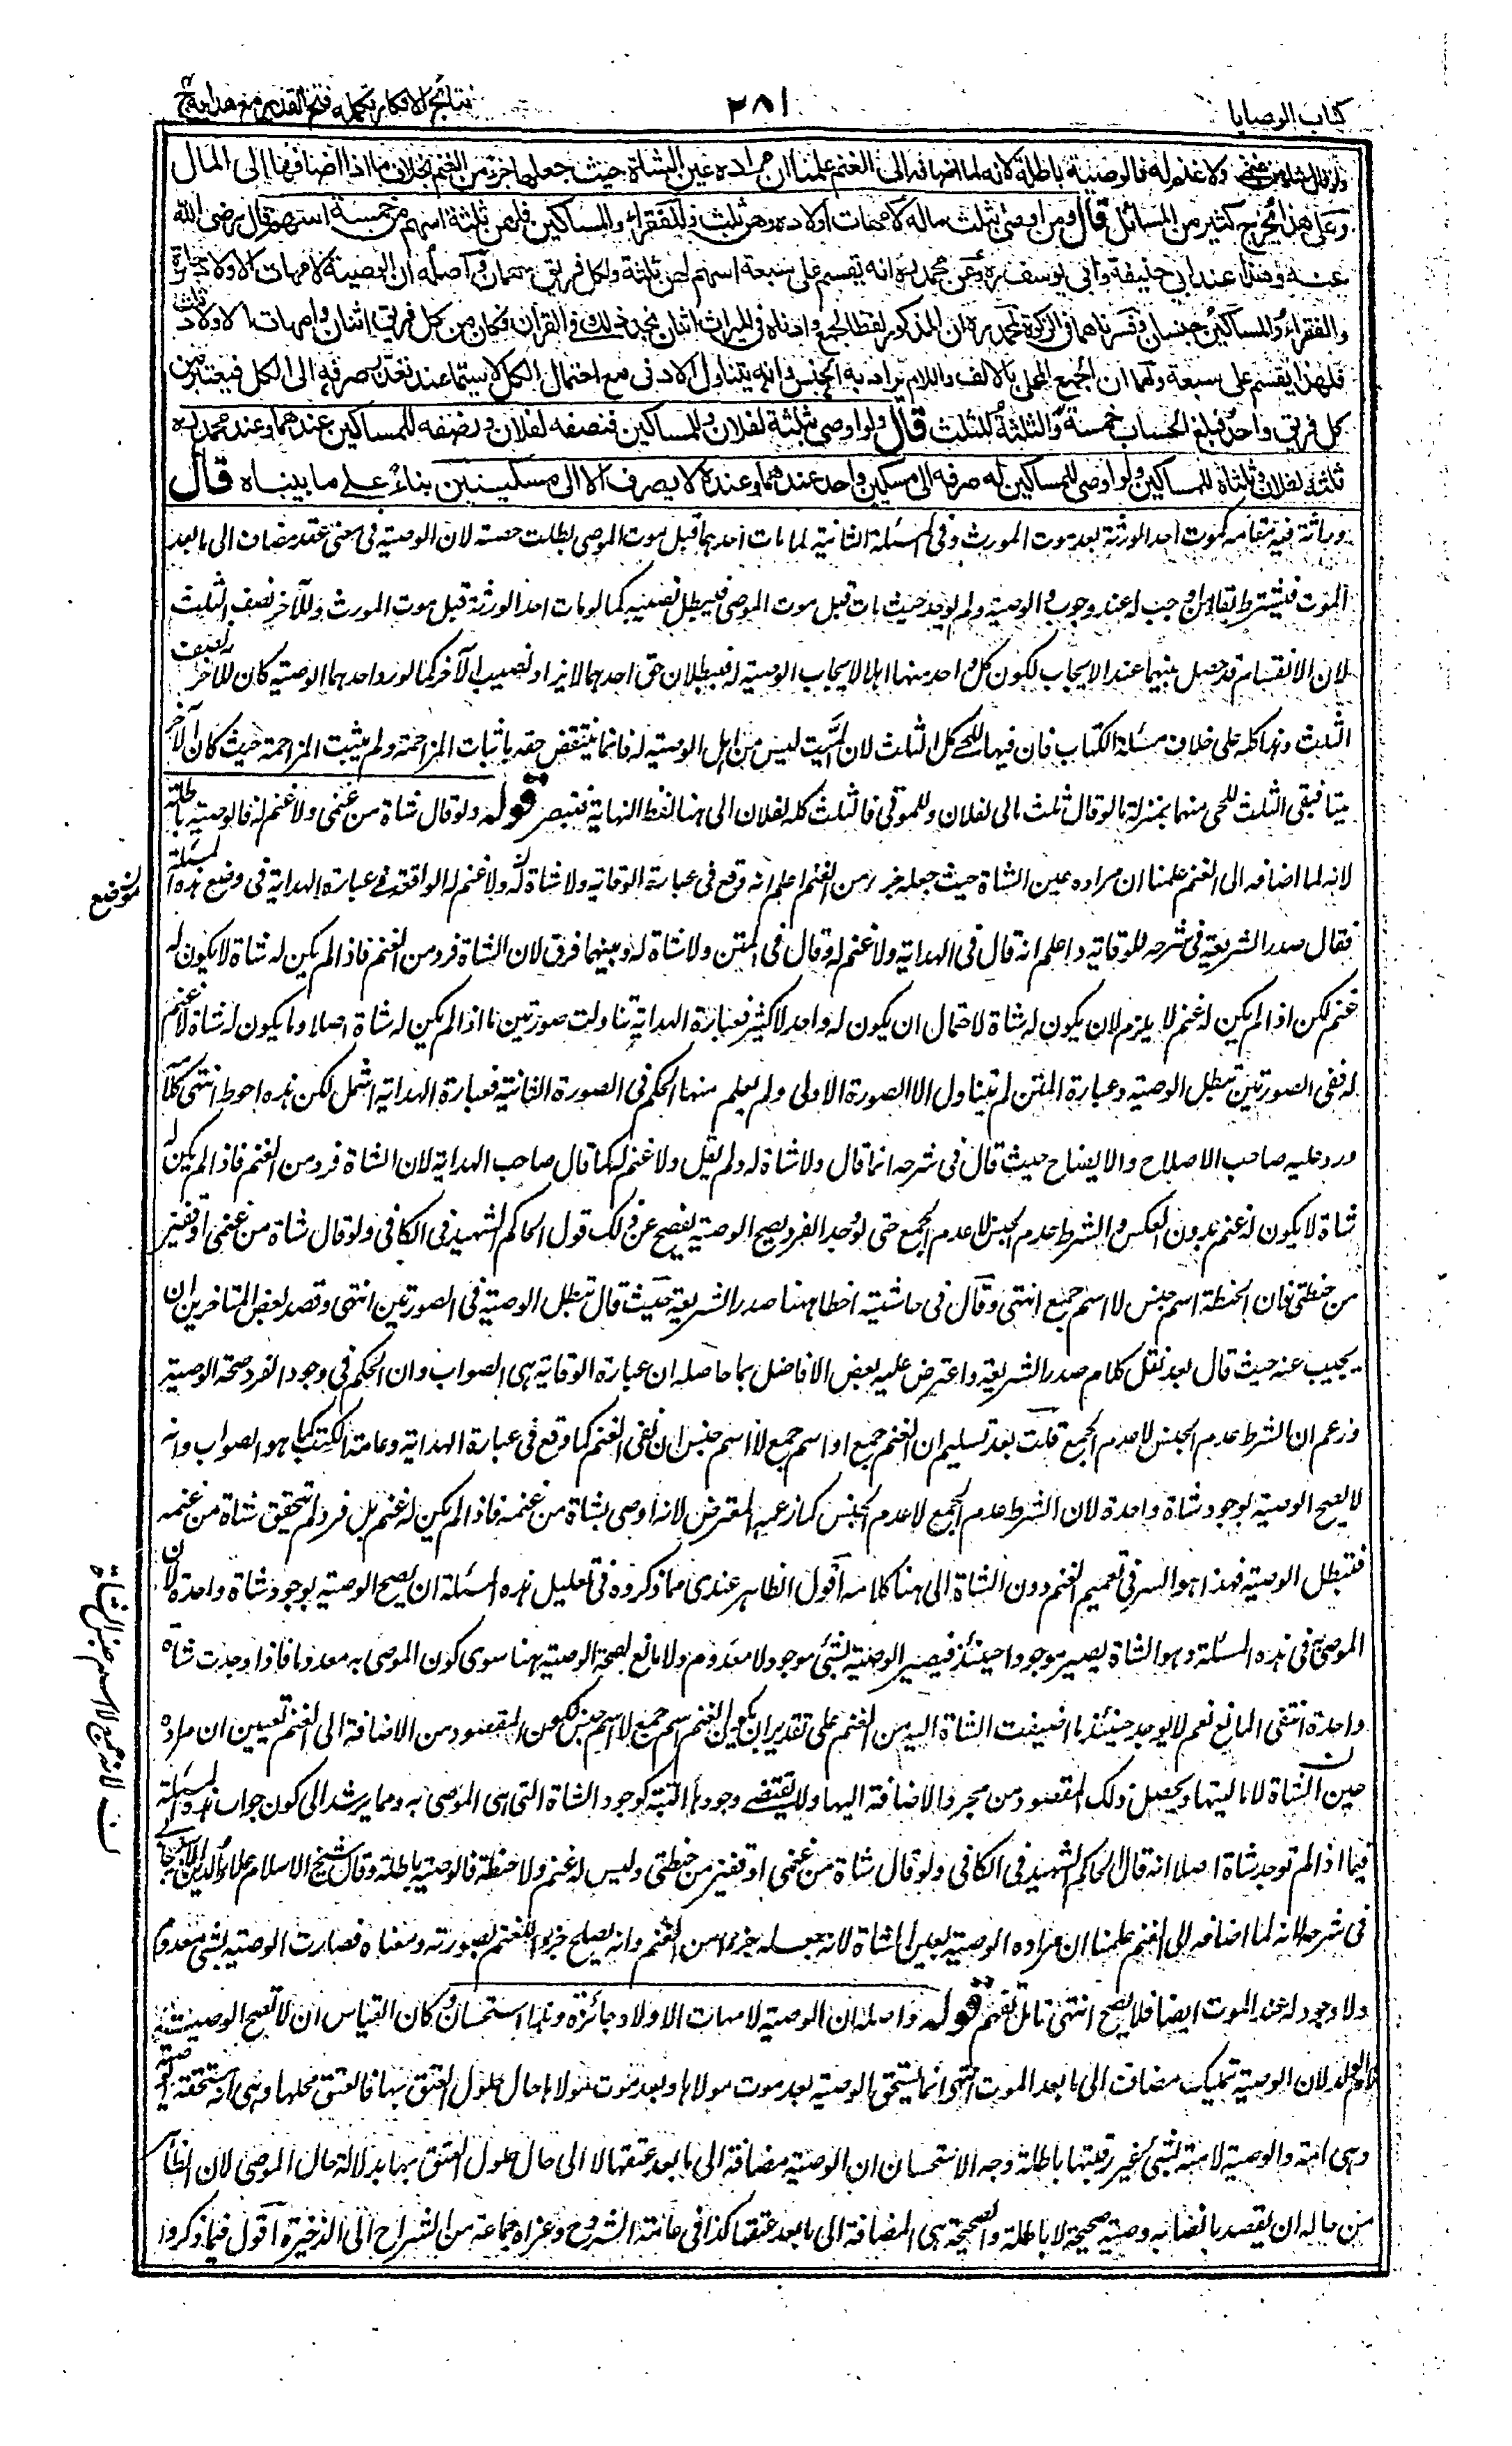 كتاب الوصايا
٢٨١
نتائج الافكار تكمله فتح القدير مع هدايه ج
ولو قال شاة من غنمى ولا غنم له فالوصية باطلة لانه لما اضافه الى الغنم علمنا ان مراده عين الشاة حيث جعلها جزء من الغنم بخلاف ما اذا اضافها الى المال
وعلى هذا يخرج كثير من المسائل قال ومن اوصى بثلث ماله لامهات اولاده وهن ثلث وللفقراء والمساكين فلهن ثلثة اسهم من خمسة اسهم قال رضى الله
عنه وهذا عند ابي حنيفة وابي يوسف ره وعن محمد ره انه يقسم على سبعة اسهم لهن ثلثة ولكل فريق سهمان اصله ان الوصية لامهات الاولاد جائزة
والفقراء والمساكين جنسان وفسرناهما فى الزكوة لمحمد ره ان المذكور لفظ الجمع وادناه فى الميراث اثنان نجد ذلك فى القران فكان من كل فريق اثنان وامهات الاولاد ثلث
فلهذا يقسم على سبعة ولهما ان الجمع المحلى بالالف واللام يراد به الجنس وانه يتناول الادنى مع احتمال الكل لا سيما عند تعذر صرفه الى الكل فيعتبر من
كل فريق واحد فبلغ الحساب خمسة والثلثة للثلث قال ولو اوصى بثلثه لفلان وللمساكين فنصفه لفلان ونصفه للمساكين عندهما وعند محمد ره
ثلثه لفلان وثلثاه للمساكين ولو اوصى للمساكين له صرفه الى مسكين واحد عندهما وعنده لا يصرف الا الى مسكينين بناء على ما بيناه قال
وراثة فيه مقامه كموت احد الورثة بعد موت المورث وفى المسئلة الثانية لما مات احدهما قبل موت الموصى بطلت حصته لان الوصية فى معنى عقد مضاف الى ما بعد
الموت فيشترط بقاء من اوجب له عند وجوب الوصية ولم يوجد حيث مات قبل موت الموصى فيبطل نصيبه كما لو مات احد الورثة قبل موت المورث وللآخر نصف الثلث
لان الانقسام قد حصل بينهما عند الايجاب لكون كل واحد منهما اهلا لايجاب الوصية له فبطلان حق احدهما لا يزاد نصيب الآخر كما لو رد احدهما الوصية كان للآخر نصف
الثلث وهذا كله على خلاف مسئلة الكتاب فان فيها للحى كل الثلث لان الميت ليس من اهل الوصية له فانما ينتقض حقه باثبات المزاحمة ولم يثبت المزاحمة حيث كان الآخر
ميتا فبقى الثلث للحى منهما بمنزلة ما لو قال ثلث مالى لفلان وللموتى فالثلث كله لفلان الى هنا لفظ النهاية فتبصر قوله ولو قال شاة من غنمى ولا غنم له فالوصية باطلة
لانه لما اضافه الى الغنم علمنا ان مراده عين الشاة حيث جعلها جزء من الغنم اعلم انه وقع فى عبارة الوقاية ولا شاة له ولا غنم له الواقعة فى عبارة الهداية فى وضع هذه المسئلة
ن موضع
فقال صدر الشريعة فى شرحه للوقاية واعلم انه قال فى الهداية ولا غنم له وقال فى المتن ولا شاة له وبينهما فرق لان الشاة فرد من الغنم فاذا لم يكن له شاة لا يكون له
غنم لكن اذا لم يكن له غنم لا يلزم لان يكون له شاة لاحتمال ان يكون له واحد لا كثير فعبارة الهداية تناولت صورتين ما اذا لم يكن له شاة اصلا وما يكون له شاة لا غنم
له ففى الصورتين تبطل الوصية وعبارة المتن لم يتناول الا الصورة الاولى ولم يعلم منها الحكم فى الصورة الثانية فعبارة الهداية اشمل لكن هذه احوط انتهى كلامه
ورد عليه صاحب الاصلاح والايضاح حيث قال فى شرحه انما قال ولا شاة له ولم يقل ولا غنم له كما قال صاحب الهداية لان الشاة فرد من الغنم فاذا لم يكن له
شاة لا يكون له غنم بدون العكس والشرط عدم الجنس لا عدم الجمع حتى لو وجد الفرد يصح الوصية يفصح عن ذلك قول الحاكم الشهيد فى الكافى ولو قال شاة من غنمى او قفيز
من حنطتى فان الحنطة اسم جنس لا اسم جمع انتهى وقال فى حاشيته اخطأ هنا صدر الشريعة حيث قال تبطل الوصية فى الصورتين انتهى وقصد بعض المتاخرين ان
يجيب عنه حيث قال بعد نقل كلام صدر الشريعة واعترض عليه بعض الافاضل بما حاصله ان عبارة الوقاية هى الصواب وان الحكم فى وجود الفرد صحة الوصية
وزعم ان الشرط عدم الجنس لا عدم الجمع قلت بعد تسليم ان الغنم جمع او اسم جمع لا اسم جنس ان نفى الغنم كما وقع فى عبارة الهداية وعامة الكتب كما هو الصواب وانه
لا يصح الوصية بوجود شاة واحدة لان الشرط عدم الجمع لا عدم الجنس كما زعمه المعترض لانه اوصى بشاة من غنمه فاذا لم يكن له غنم بل فرد لم يتحقق شاة من غنمه
فتبطل الوصية فهذا هو السر فى تعميم الغنم دون الشاة الى هنا كلامه اقول الظاهر عندى مما ذكروه فى تعليل هذه المسئلة ان يصح الوصية بوجود شاة واحدة لان
الموصى به فى هذه المسئلة وهو الشاة يصير موجودا حينئذ فيصير الوصية بشئ موجود لا معدوم ولا مانع لصحة الوصية ههنا سوى كون الموصى به معدوما فاذا وجدت شاة
واحدة انتفى المانع نعم لا يوجد حينئذ ما اضيفت الشاة اليه من الغنم على تقدير ان يكون الغنم اسم جمع لا اسم جنس لكن المقصود من الاضافة الى الغنم تعيين ان مراده
عين الشاة لا ماليتها ويحصل ذلك المقصود من مجرد الاضافة اليها ولا يقتضى وجودها البتة كوجود الشاة التى هى الموصى به ومما يرشد الى كون جواب هذه المسئلة
فيما اذا لم توجد شاة اصلا انه قال الحاكم الشهيد فى الكافى ولو قال شاة من غنمى او قفيز من حنطتى وليس له غنم ولا حنطة فالوصية باطلة وقال شيخ الاسلام علاء الدين الاسبيجابى
فى شرحه لانه لما اضافه الى الغنم علمنا ان مراده الوصية بعين الشاة لانه جعله جزءا من الغنم وانه يصلح جزءا للغنم بصورته ومعناه فصارت الوصية بشئ معدوم
ولا وجود له عند الموت ايضا فلا يصح انتهى تامل تفهم قوله واصله ان الوصية لامهات الاولاد جائزة وهذا استحسان وكان القياس ان لا تصح الوصية
لان الوصية تمليك مضاف الى ما بعد الموت انتهى انما يستحق الوصية بعد موت مولاها وبعد موت مولاها حال حلول العتق بها فالعتق محلها وهى امة
وهى امة والوصية لامته بشئ غير رقبتها باطلة وجه الاستحسان ان الوصية مضافة الى ما بعد عتقها لا الى حال حلول العتق بها بدلالة حال الموصى لان الظاهر
من حاله ان يقصد بايصائه وصية صحيحة لا باطلة والصحيحة هى المضافة الى ما بعد عتقها كذا فى عامة الشروح وعزاه جماعة من الشراح الى الذخيرة اقول فيما ذكروا